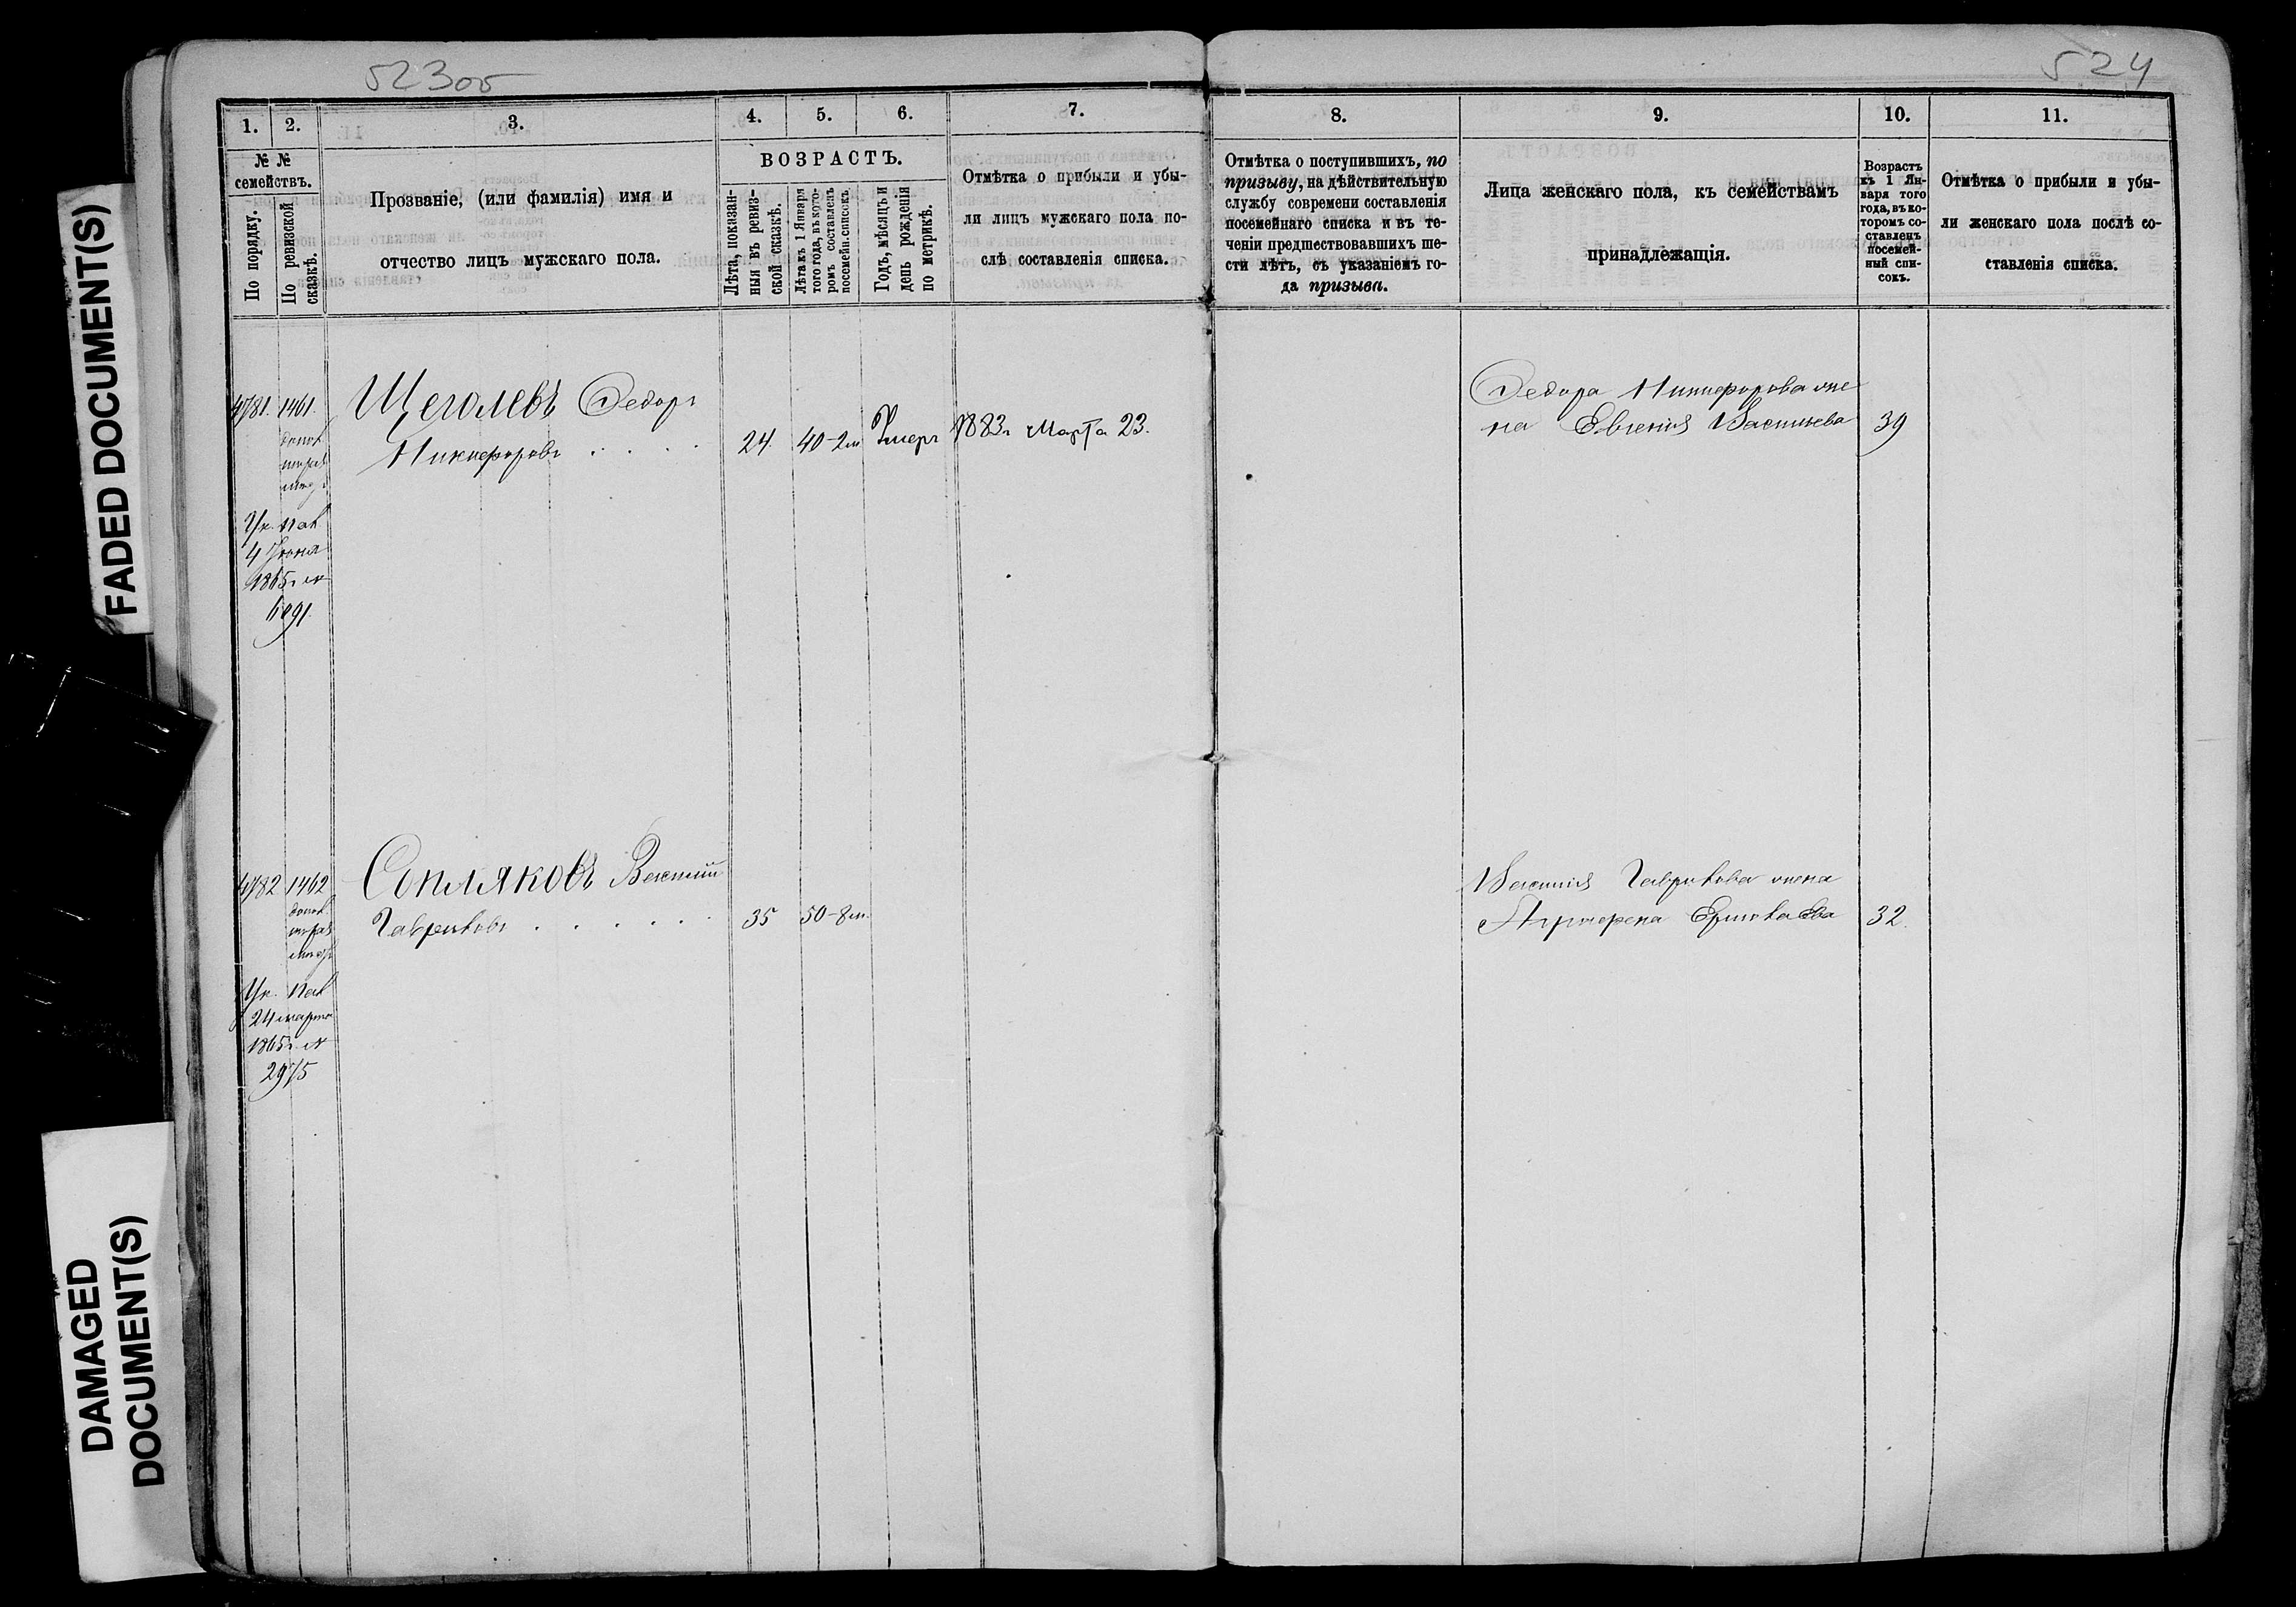 523об
524
FADED DOCUMENT(S)
DAMAGED
DOCUMENT(S)
1.
2.
3.
4.
5.
6.
7.
8.
9.
10.
11.
№ №
семействъ.
По порядку.
По ревизской
сказкѣ.
Прозваніе, (или фамилія) имя и
отчество лицъ мужскаго пола.
ВОЗРАСТЪ.
Лѣта, показан-
ныя въ ревиз-
ской сказкѣ.
Лѣта къ 1 Января
того года, въ кото-
ромъ составленъ
посемейн. списокъ
Годъ, мѣсяцъ и
день рожденія
по метрикѣ.
Отмѣтка о прибыли и убы-
ли лицъ мужскаго пола по-
слѣ составленія списка.
Отмѣтка о поступившихъ, по
призыву, на дѣйствительную
службу современи составленія
посемейнаго списка и въ те-
ченіи предшествовавшихъ ше-
сти лѣтъ, съ указаніемъ го-
да призыва.
Лица женскаго пола, къ семействамъ
принадлежащія.
Возрастъ
къ 1 Ян-
варя того
года, въ ко-
торомъ со-
ставленъ
посемей-
ный спи-
сокъ.
Отмѣтка о прибыли и убы-
ли женскаго пола послѣ со-
ставленія списка.
4781. 1461. Щеголевъ Федоръ
Никифоровъ . . . . 24. 40-2м Умеръ 1883г Марта 23.
Федора Никифорова же
на Евгенія Васильева 39
4 Іюня
1865г №
6091.
4782 1462 Сопляковъ Василій
Гавриловъ . . . . . 35 50-8м.
Василія Гаврилова жена
Агрипена Ермолаева 32.
24 марта
1865г. №
2975